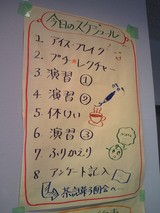 今日のスケジュール
1 アイス・ブレイク
2 プチ★レクチャー
3 演習①
4 演習②
5 休けい
6 演習③
7 ふりかえり
8 アンケート記入